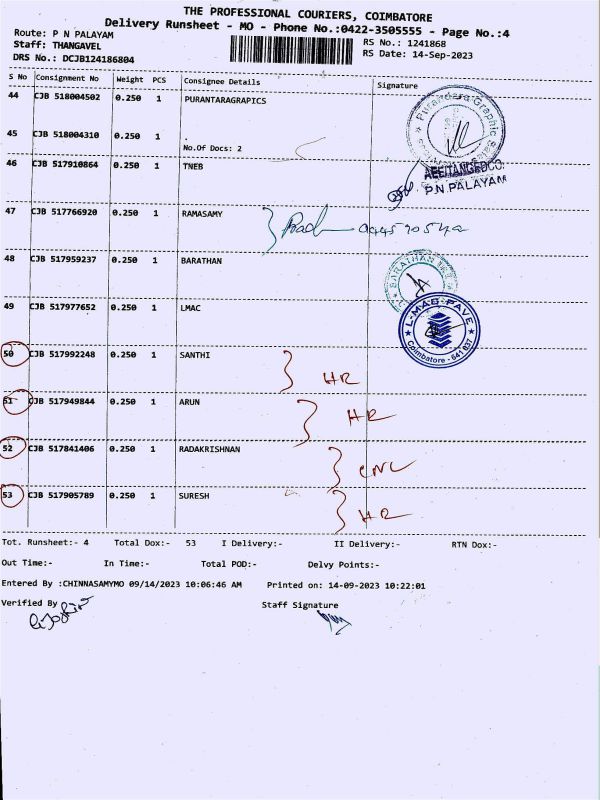 THE PROFESSIONAL COURIERS, COIMBATORE
Delivery Runsheet - MO - Phone No.:0422-3505555 - Page No.:4
Route: P N PALAYAM
RS No.: 1241868
Staff: THANGAVEL
RS Date: 14-Sep-2023
DRS No.: DCJB124186804
S No Consignment No Weight PCS Consignee Details Signature
44 CJB 518004502 0.250 1 PURANTARAGRAPICS
45 CJB 518004310 0.250 1 .
No.Of Docs: 2
46 CJB 517910864 0.250 1 TNEB
AEE/TANGEDCO
P.N.PALAYAM
47 CJB 517766920 0.250 1 RAMASAMY
48 CJB 517959237 0.250 1 BARATHAN
49 CJB 517977652 0.250 1 LMAC
L-MAC PAVE
Coimbatore - 641 037
50 CJB 517992248 0.250 1 SANTHI
HR
51 CJB 517949844 0.250 1 ARUN
HR
52 CJB 517841406 0.250 1 RADAKRISHNAN
CNC
53 CJB 517905789 0.250 1 SURESH
HR
Tot. Runsheet:- 4 Total Dox:- 53 I Delivery:- II Delivery:- RTN Dox:-
Out Time:- In Time:- Total POD:- Delvy Points:-
Entered By :CHINNASAMYMO 09/14/2023 10:06:46 AM Printed on: 14-09-2023 10:22:01
Verified By Staff Signature